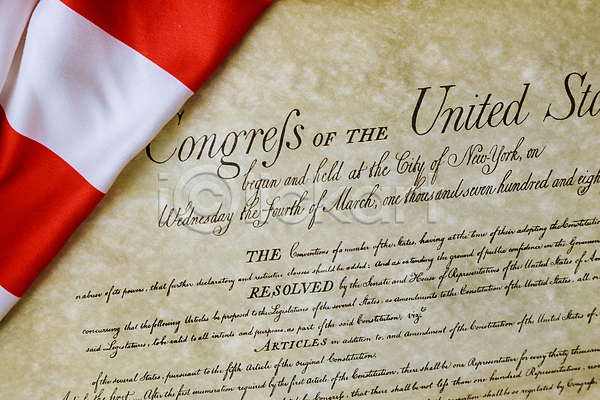 Congreſs OF THE United Sta
begun and held at the City of New-York, on
Wednesday the Fourth of March, one thousand seven hundred and eigh
THE Conventions of a number of the States, having at the time of their adopting the Constitution
or abuse of its powers, that further declaratory and restrictive clauses should be added: And as extending the ground of public confidence in the Government
RESOLVED by the Senate and House of Representatives of the United States of A
concurring that the following Articles be proposed to the Legislatures of the several States, as amendments to the Constitution of the United States, all or
said Legislatures, to be valid to all intents and purposes, as part of the said Constitution; vizt
ARTICLES in addition to, and Amendment of the Constitution of the United States of
of the several States, pursuant to the fifth Article of the original Constitution.
After the first enumeration required by the first Article of the Constitution, there shall be one Representative for every thirty thousand
Congress, that there shall be not less than one hundred Representatives, nor
shall be so regulated by Congress,